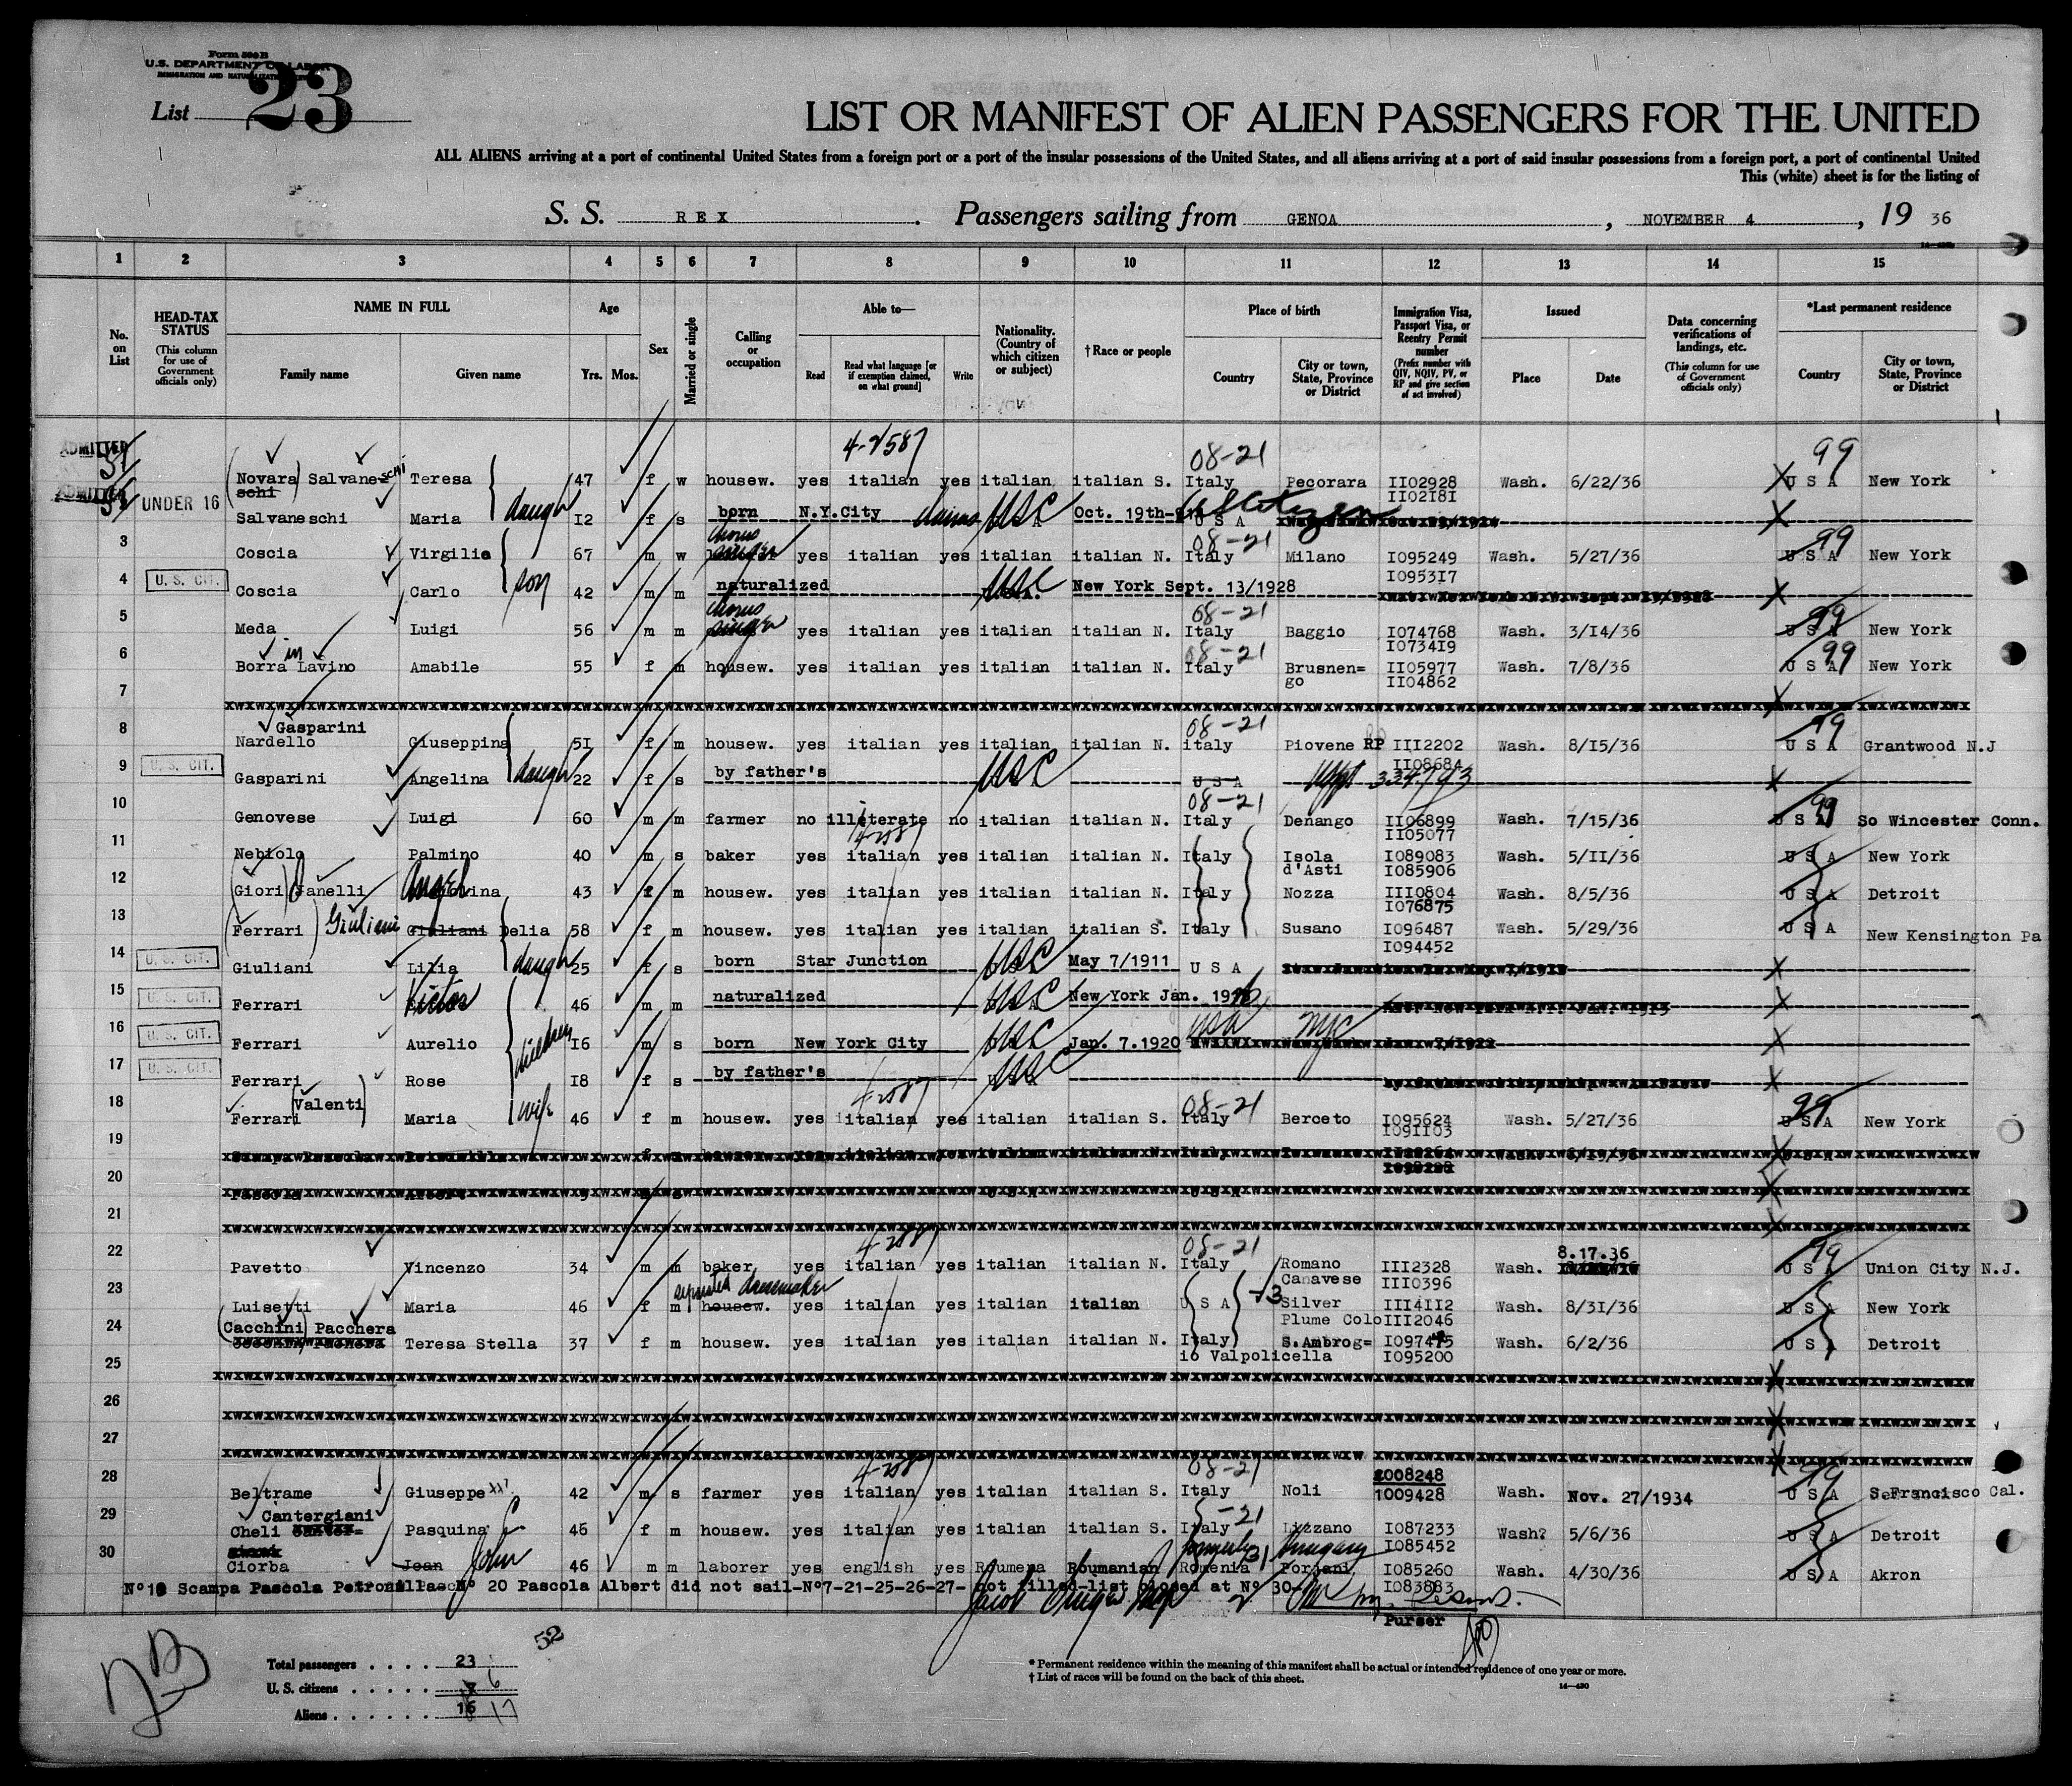 Form 500 B
U.S. DEPARTMENT OF LABOR
IMMIGRATION AND NATURALIZATION SERVICE
List 23
LIST OR MANIFEST OF ALIEN PASSENGERS FOR THE UNITED
ALL ALIENS arriving at a port of continental United States from a foreign port or a port of the insular possessions of the United States, and all aliens arriving at a port of said insular possessions from a foreign port, a port of continental United
This (white) sheet is for the listing of
S. S. REX . Passengers sailing from GENOA , NOVEMBER 4 , 19 36
1 2 3 4 5 6 7 8 9 10 11 12 13 14 15
No. on List
HEAD-TAX STATUS (This column for use of Government officials only)
NAME IN FULL Family name Given name
Age Yrs. Mos.
Sex
Married or single
Calling or occupation
Able to— Read Read what language [or if exemption claimed, on what ground] Write
Nationality. (Country of which citizen or subject)
†Race or people
Place of birth Country City or town, State, Province or District
Immigration Visa, Passport Visa, or Reentry Permit number (Prefix number with QIV, NQIV, PV, or RP and give section of act involved)
Issued Place Date
Data concerning verifications of landings, etc. (This column for use of Government officials only)
*Last permanent residence Country City or town, State, Province or District
ADMITTED (Novara schi) Salvaneschi Teresa 47 f w housew. yes italian yes italian italian S. 08-21 Italy Pecorara II02928 II02I8I Wash. 6/22/36 99 U S A New York
ADMITTED UNDER 16 Salvaneschi Maria daugh I2 f s born N.Y.City claims USC Oct. 19th- U S A
3 Coscia Virgilio 67 m w chorus singer yes italian yes italian italian N. 08-21 Italy Milano I095249 I0953I7 Wash. 5/27/36 99 U S A New York
4 U. S. CIT. Coscia Carlo son 42 m m naturalized USC New York Sept. 13/1928
5 Meda Luigi 56 m m chorus singer yes italian yes italian italian N. 08-21 Italy Baggio I074768 I0734I9 Wash. 3/I4/36 99 U S A New York
6 Borra in Lavino Amabile 55 f m housew. yes italian yes italian italian N. 08-21 Italy Brusnen= go II05977 II04862 Wash. 7/8/36 99 U S A New York
7
8 Gasparini Nardello Giuseppina 5I f m housew. yes italian yes italian italian N. 08-21 italy Piovene RP III2202 II08684 Wash. 8/I5/36 99 U S A Grantwood N.J
9 U. S. CIT. Gasparini Angelina daugh 22 f s by father's USC U S A 334793
10 Genovese Luigi 60 m m farmer no illeterate no italian italian N. 08-21 Italy Denango II06899 II05077 Wash. 7/I5/36 99 U S A So Wincester Conn.
11 Nebiolo Palmino 40 m s baker yes italian yes italian italian N. Italy Isola d'Asti I089083 I085906 Wash. 5/II/36 U S A New York
12 (Giori) Janelli 43 f m housew. yes italian yes italian italian N. Italy Nozza III0804 I076875 Wash. 8/5/36 U S A Detroit
13 (Ferrari) Giuliani Giuliani Delia 58 f m housew. yes italian yes italian italian S. Italy Susano I096487 I094452 Wash. 5/29/36 U S A New Kensington Pa
14 U. S. CIT. Giuliani Lilia daugh 25 f s born Star Junction USC May 7/1911 U S A
15 U. S. CIT. Ferrari Victor 46 m m naturalized USC New York Jan.
16 U. S. CIT. Ferrari Aurelio children I6 m s born New York City USC Jan. 7.1920 USA NYC
17 U. S. CIT. Ferrari Rose I8 f s by father's USC
18 Ferrari (Valenti) Maria wife 46 f m housew. yes italian yes italian italian S. 08-21 Italy Berceto I095624 I09II03 Wash. 5/27/36 99 U S A New York
19
20
21
22 Pavetto Vincenzo 34 m m baker yes italian yes italian italian N. 08-21 Italy Romano Canavese III2328 III0396 Wash. 8.17.36 99 U S A Union City N.J.
23 Luisetti Maria 46 f m separated housew. yes italian yes italian italian U S A Silver Plume Colo III4II2 III2046 Wash. 8/3I/36 U S A New York
24 (Cacchini) Pacchera Teresa Stella 37 f m housew. yes italian yes italian italian N. Italy S.Ambrog= io Valpolicella I095200 Wash. 6/2/36 U S A Detroit
25
26
27
28 Beltrame Giuseppe 42 m s farmer yes italian yes italian italian S. 08-21 Italy Noli 1008248 1009428 Wash. Nov. 27/1934 99 U S A S.Francisco Cal.
29 Cantergiani Cheli Pasquina 46 f m housew. yes italian yes italian italian S. Italy Lizzano I087233 I085452 Wash? 5/6/36 U S A Detroit
30 Ciorba Jean John 46 m m laborer yes english yes Roumena Roumanian Romenia formerly Hungary I085260 I083883 Wash. 4/30/36 U S A Akron
Nº19 Scampa Pascola Petronilla Nº 20 Pascola Albert did not sail-Nº7-21-25-26-27- not filled-list closed at Nº 30-
Purser
52
Total passengers . . . . 23
U. S. citizens . . . . . 6
Aliens . . . . . . 16 17
* Permanent residence within the meaning of this manifest shall be actual or intended residence of one year or more.
† List of races will be found on the back of this sheet.
14—430